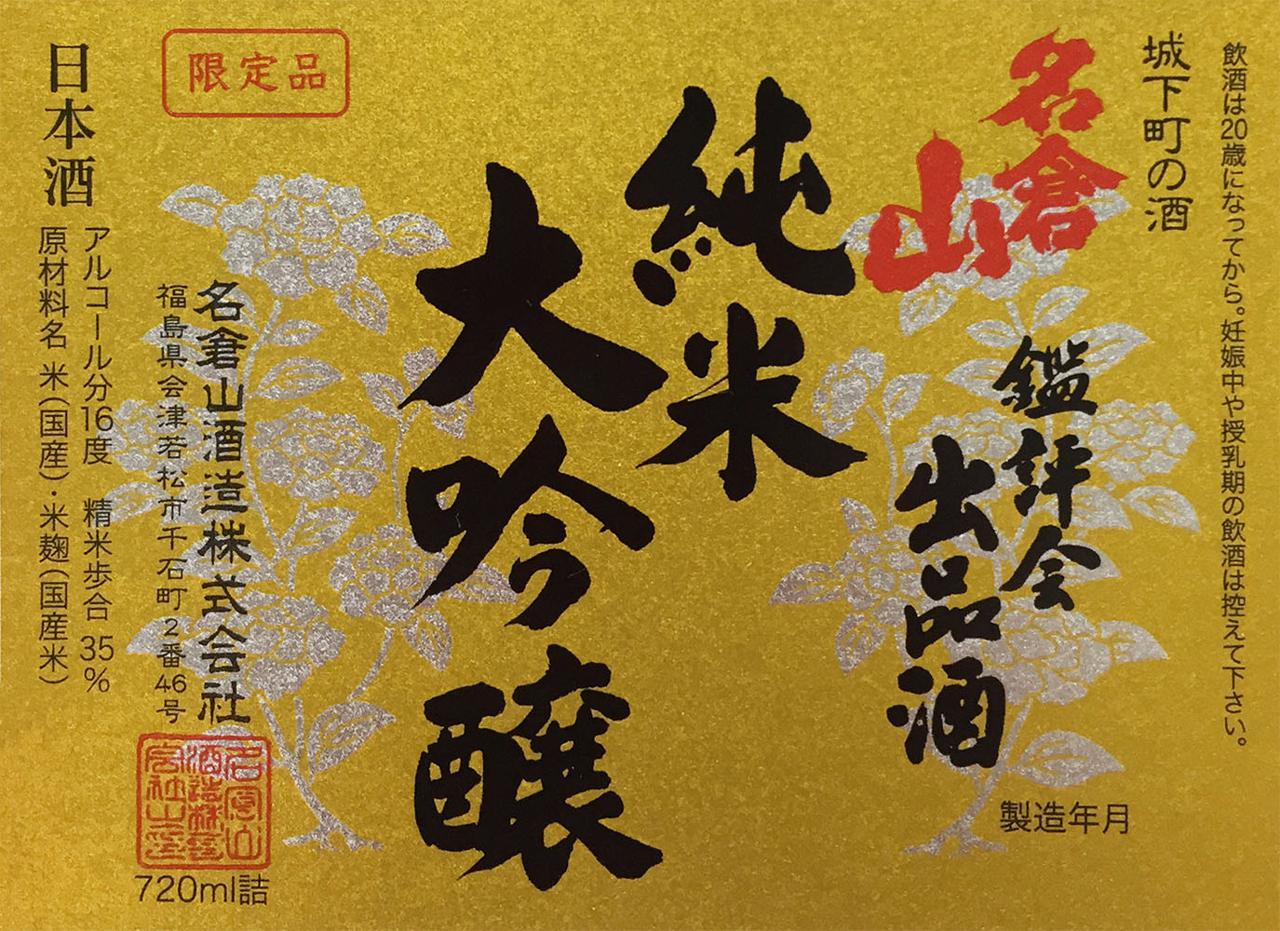 飲酒は20歳になってから。妊娠中や授乳期の飲酒は控えて下さい。
城下町の酒
名倉山
鑑評会
出品酒
製造年月
純米
大吟醸
限定品
名倉山酒造株式会社
福島県会津若松市千石町2番46号
720ml詰
日本酒
アルコール分16度 精米歩合 35%
原材料名 米(国産)・米麹(国産米)